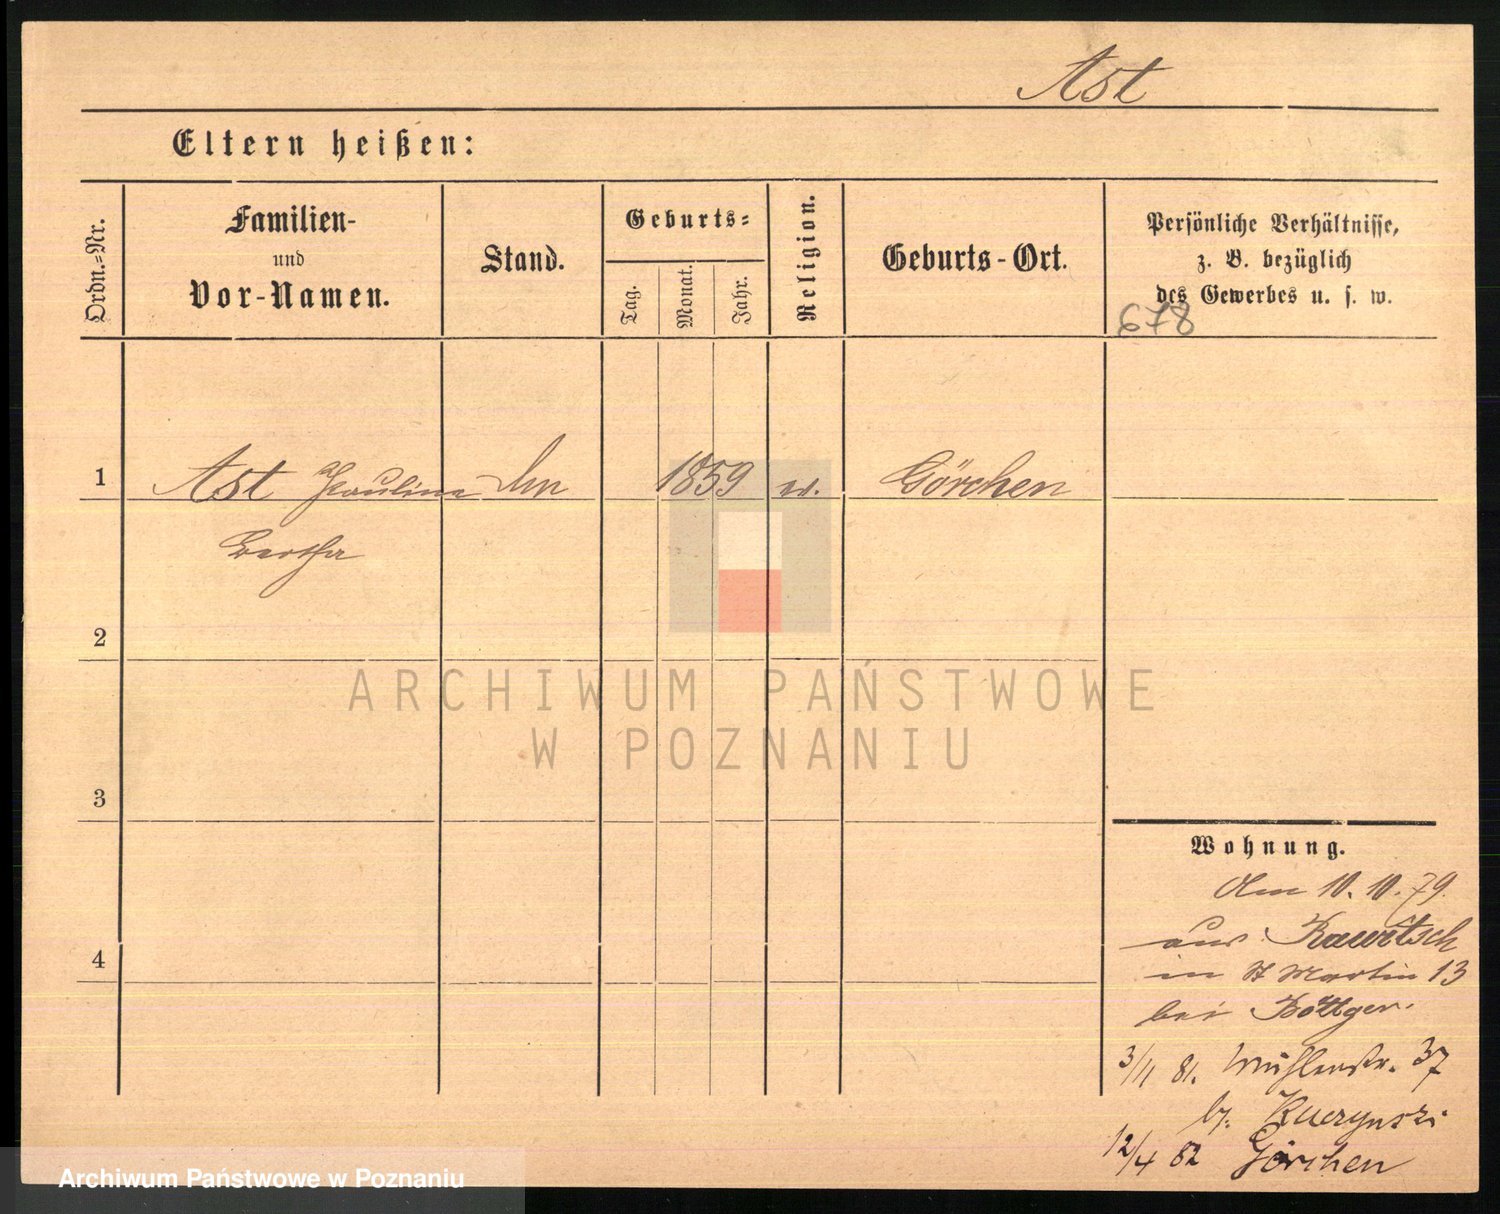 Ast
Eltern heißen:
Ordn.=Nr.
Familien-
und
Vor-Namen.
Stand.
Geburts=
Tag.
Monat.
Jahr.
Religion.
Geburts-Ort.
Persönliche Verhältnisse,
z. B. bezüglich
des Gewerbes u. s. w.
678
1 Ast Pauline 1859 Görchen
Bertha
2
ARCHIWUM PAŃSTWOWE
W POZNANIU
3
Wohnung.
10. 10. 79.
aus Rawitsch
4
in St Martin 13
bei Böttger.
3/11 81. Mühlenstr. 37
b.
12/4 82 Görchen
Archiwum Państwowe w Poznaniu